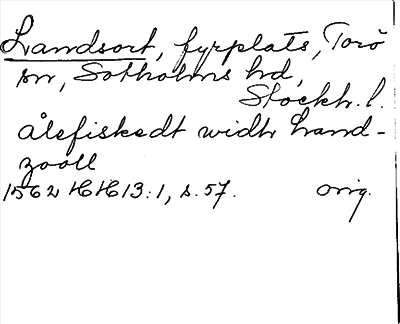 Landsort, fyrplats, Torö
sn, Sotholms hd,
Stockh. l.
ålefiskedt widh Land-
zooll
1562 HH 13:1, s. 57. orig.